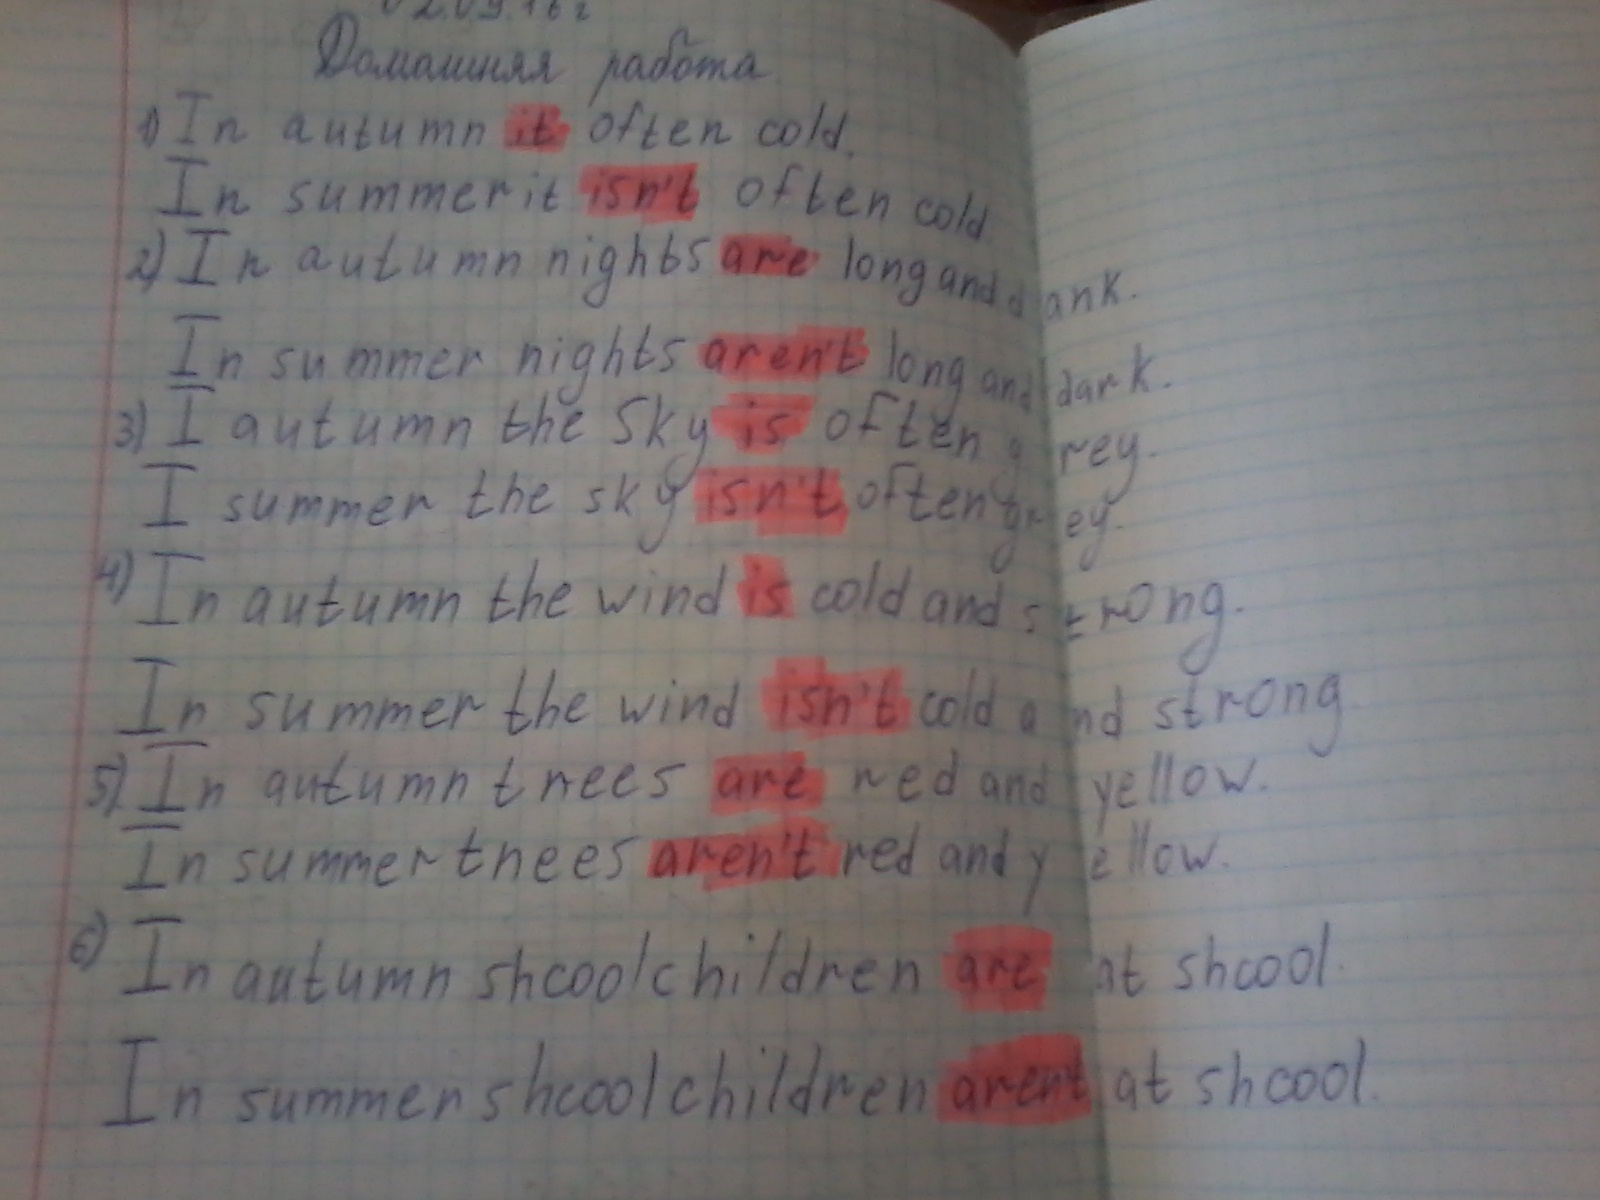 02.09.16 г
Домашняя работа
1) In autumn it often cold.
In summer it isn't often cold
2) In autumn nights are long and dank.
In summer nights aren't long and dark.
3) I autumn the sky is often grey.
I summer the sky isn't often grey.
4) In autumn the wind is cold and strong.
In summer the wind isn't cold and strong
5) In autumn trees are red and yellow.
In summer trees aren't red and yellow.
6) In autumn shcoolchildren are at shcool.
In summer shcoolchildren aren't at shcool.